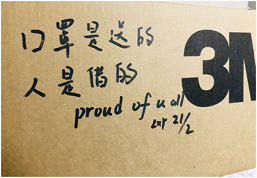 口罩是送的
人是借的
proud of u all
21/2
3M